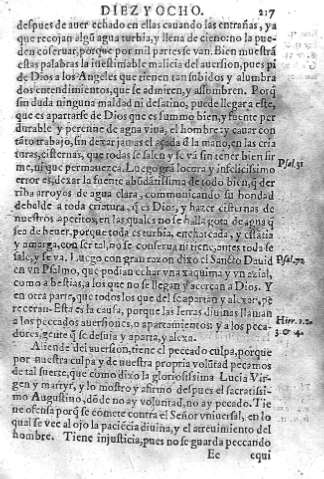 DIEZ Y OCHO. 217
despues de auer echado en ellas cauando las entrañas, ya
que recojan algũ agua turbia, y llena de cieno: no la pue-
den cõseruar, porque por mil partes se van. Bien muestrá
estas palabras la inestimable malicia del auersion, pues pi
de Dios a los Angeles que tienen tan subidos y alumbra
dos entendimientos, que se admiren, y assombren. Porq̃
sin duda ninguna maldad ni desatino, puede llegar a este,
que es apartarse de Dios que es summo bien, y fuente per
durable y perenne de agua viua, el hombre: y cauar con
táto trabajo, sin dexar jamas el açada d̃ la mano, en las cria
turas, cisternas, que todas se salen y se vá sin tener bien fir
me, ni que permanezca. Luego grã locura y infelicissimo
error es, dexar la fuente abũdãtissima de todo bien, q̃ der
riba arroyos de agua clara, communicando su bondad
Psal. 35
debalde a toda criatura, q̃ es Dios, y hazer cisternas de
nuestros apetitos, en las quales no se halla gota de agua q̃
sea de beuer, porque toda es turbia, encharcada, y estátia
y amarga, con ser tal, no se conserua ni tiene, antes toda se
sale, y se va. Luego con gran razon dixo el Sancto Dauid
Psal. 72
en vn Psalmo, que podian echar vna xaquima y vn axial,
como a bestias, a los que no se llegan y acercan a Dios. Y
en otra parte, que todos los que del se apartan y alexar, pe
receran. Esta es la causa, porque las letras diuinas llaman
Hier. 2.
a los peccados auersiones, o apartamientos: y a los peca-
3. & 4.
dores, gente q̃ se desuia y aparta, y alexa.
Allende del auersion, tiene el peccado culpa, porque
por nuestra culpa y de nuestra propria voluntad pecamos
de tal suerte, que como dixo la gloriosissima Lucia Vir-
gen y martyr, y lo mostro y affirmó despues el sacratissi-
mo Augustino, dõde no ay voluntad, no ay pecado. Tie
ne ofensa porq̃ se comete contra el Señor vniuersal, en lo
qual se vee al ojo la paciẽcia diuina, y el atreuimiento del
hombre. Tiene injusticia, pues no se guarda peccando
Ee equi